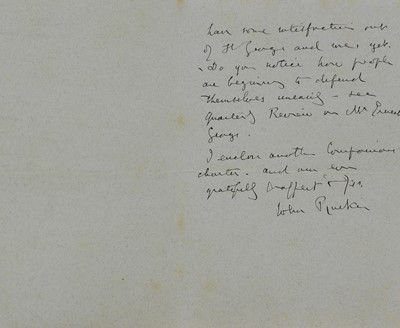 have some satisfaction out
of St George and me, yet.
- Do you notice how people
are beginning to defend
themselves uneasily - see
Quarterly Review on Mr Ernest
George.
I enclose another Companions
charter. and am ever
gratefully &
John Ruskin